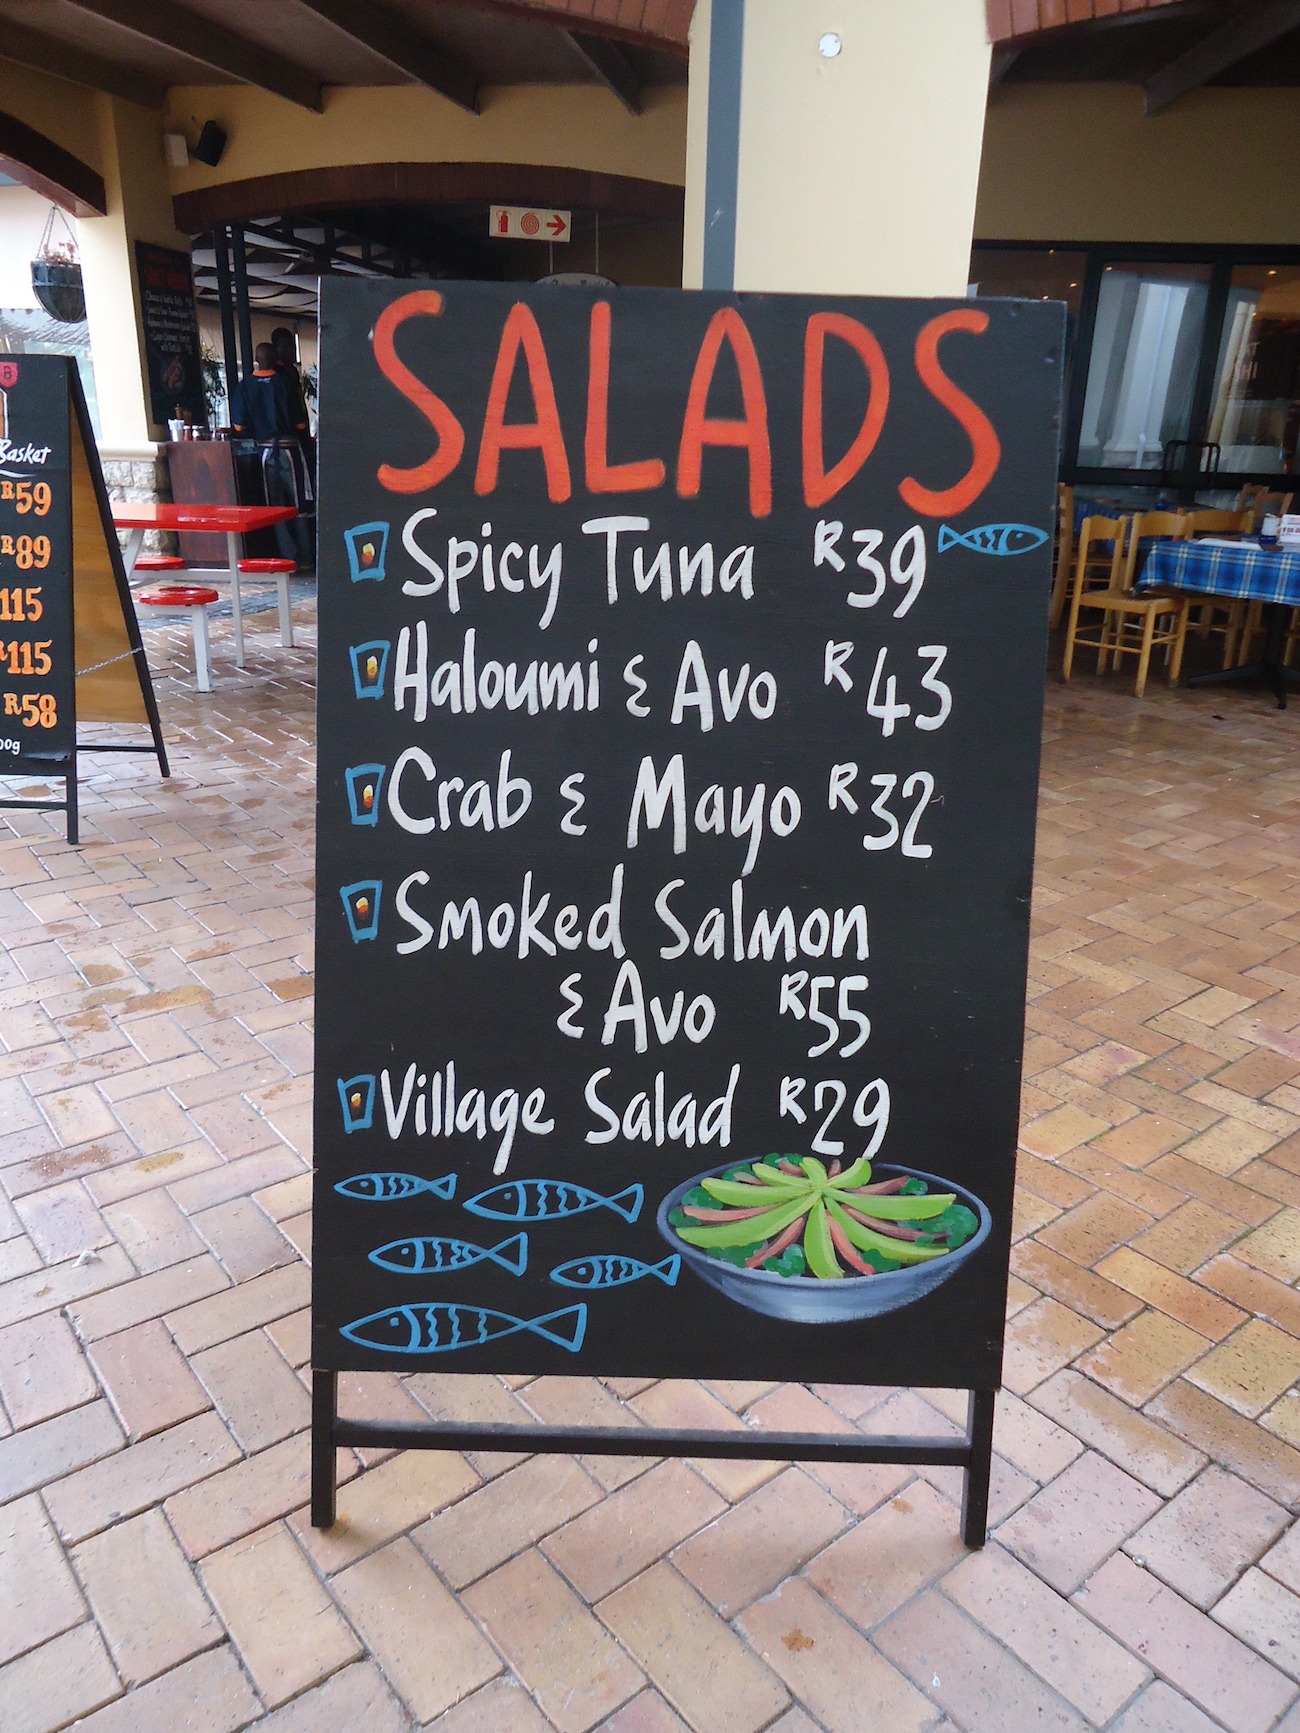 SALADS
Spicy Tuna R39
Haloumi & Avo R43
Crab & Mayo R32
Smoked Salmon
& Avo R55
Village Salad R29
B
Basket
R59
R89
115
R115
R58
00g